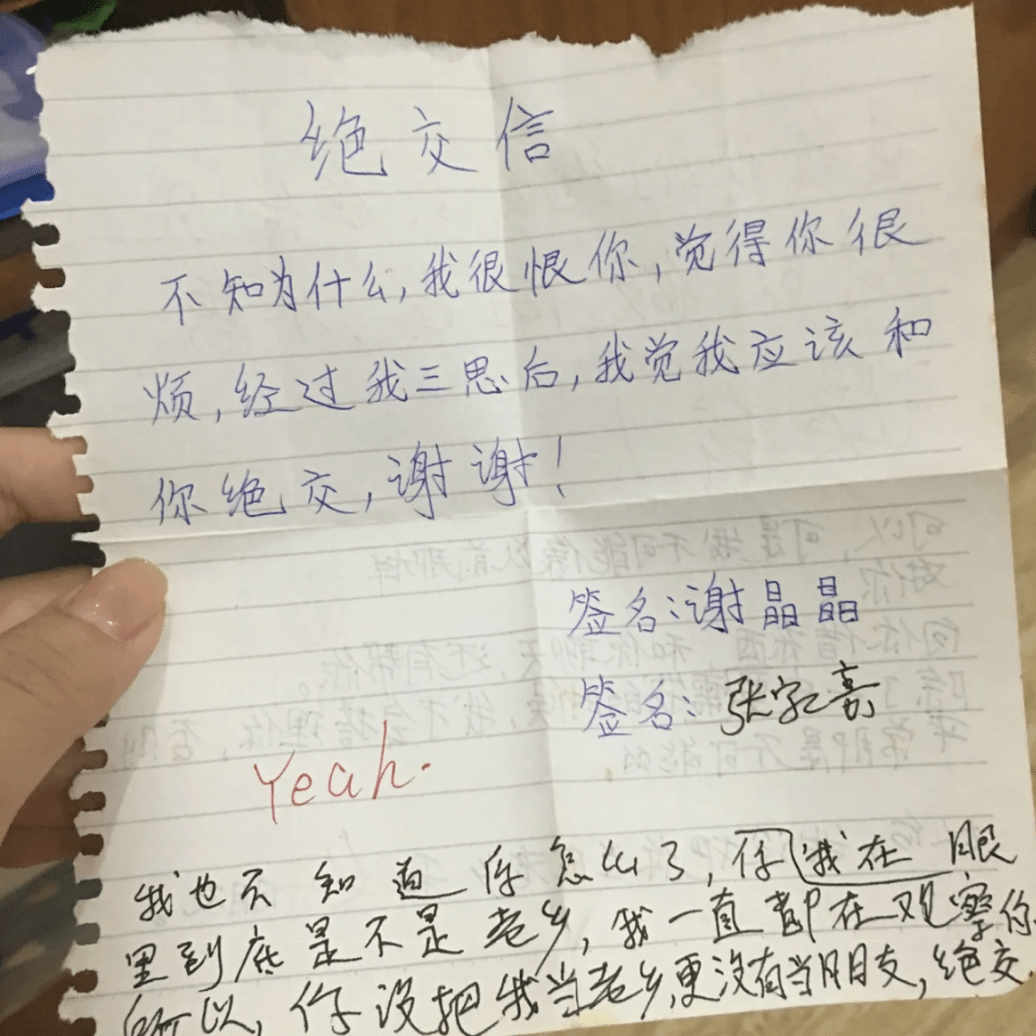 绝交信
不知为什么,我很恨你,觉得你很
烦,经过我三思后,我觉我应该和
你绝交,谢谢!
签名:谢晶晶
签名:张家嘉
Yeah.
我也不知道你怎么了,你我在眼
里到底是不是老乡,我一直都在观察你
所以,你没把我当老乡,更没有当朋友,绝交